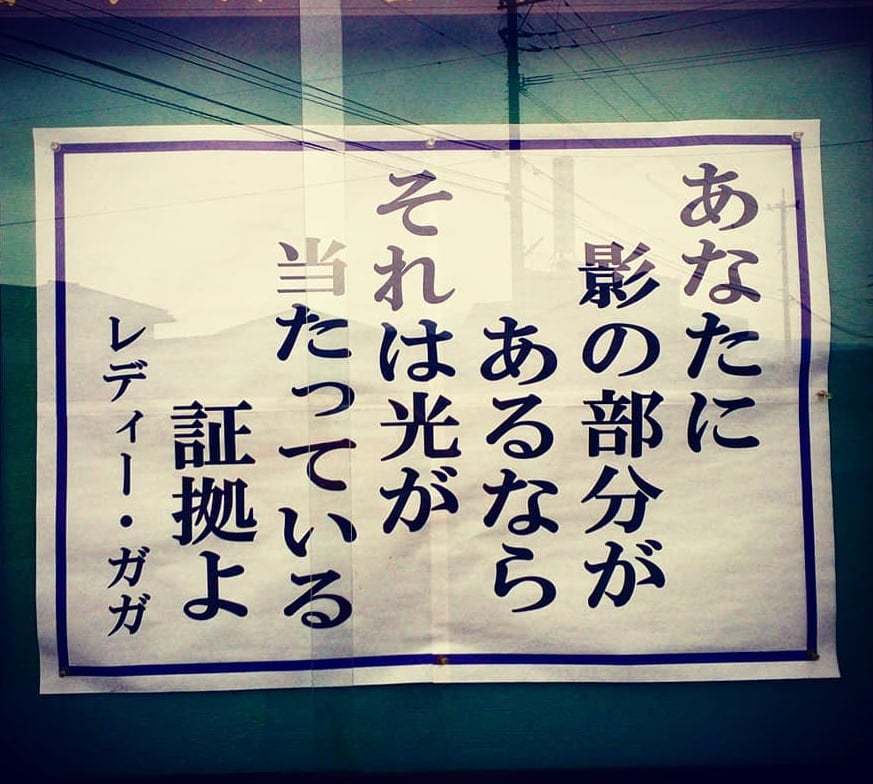 あなたに
影の部分が
あるなら
それは光が
当たっている
証拠よ
レディー・ガガ